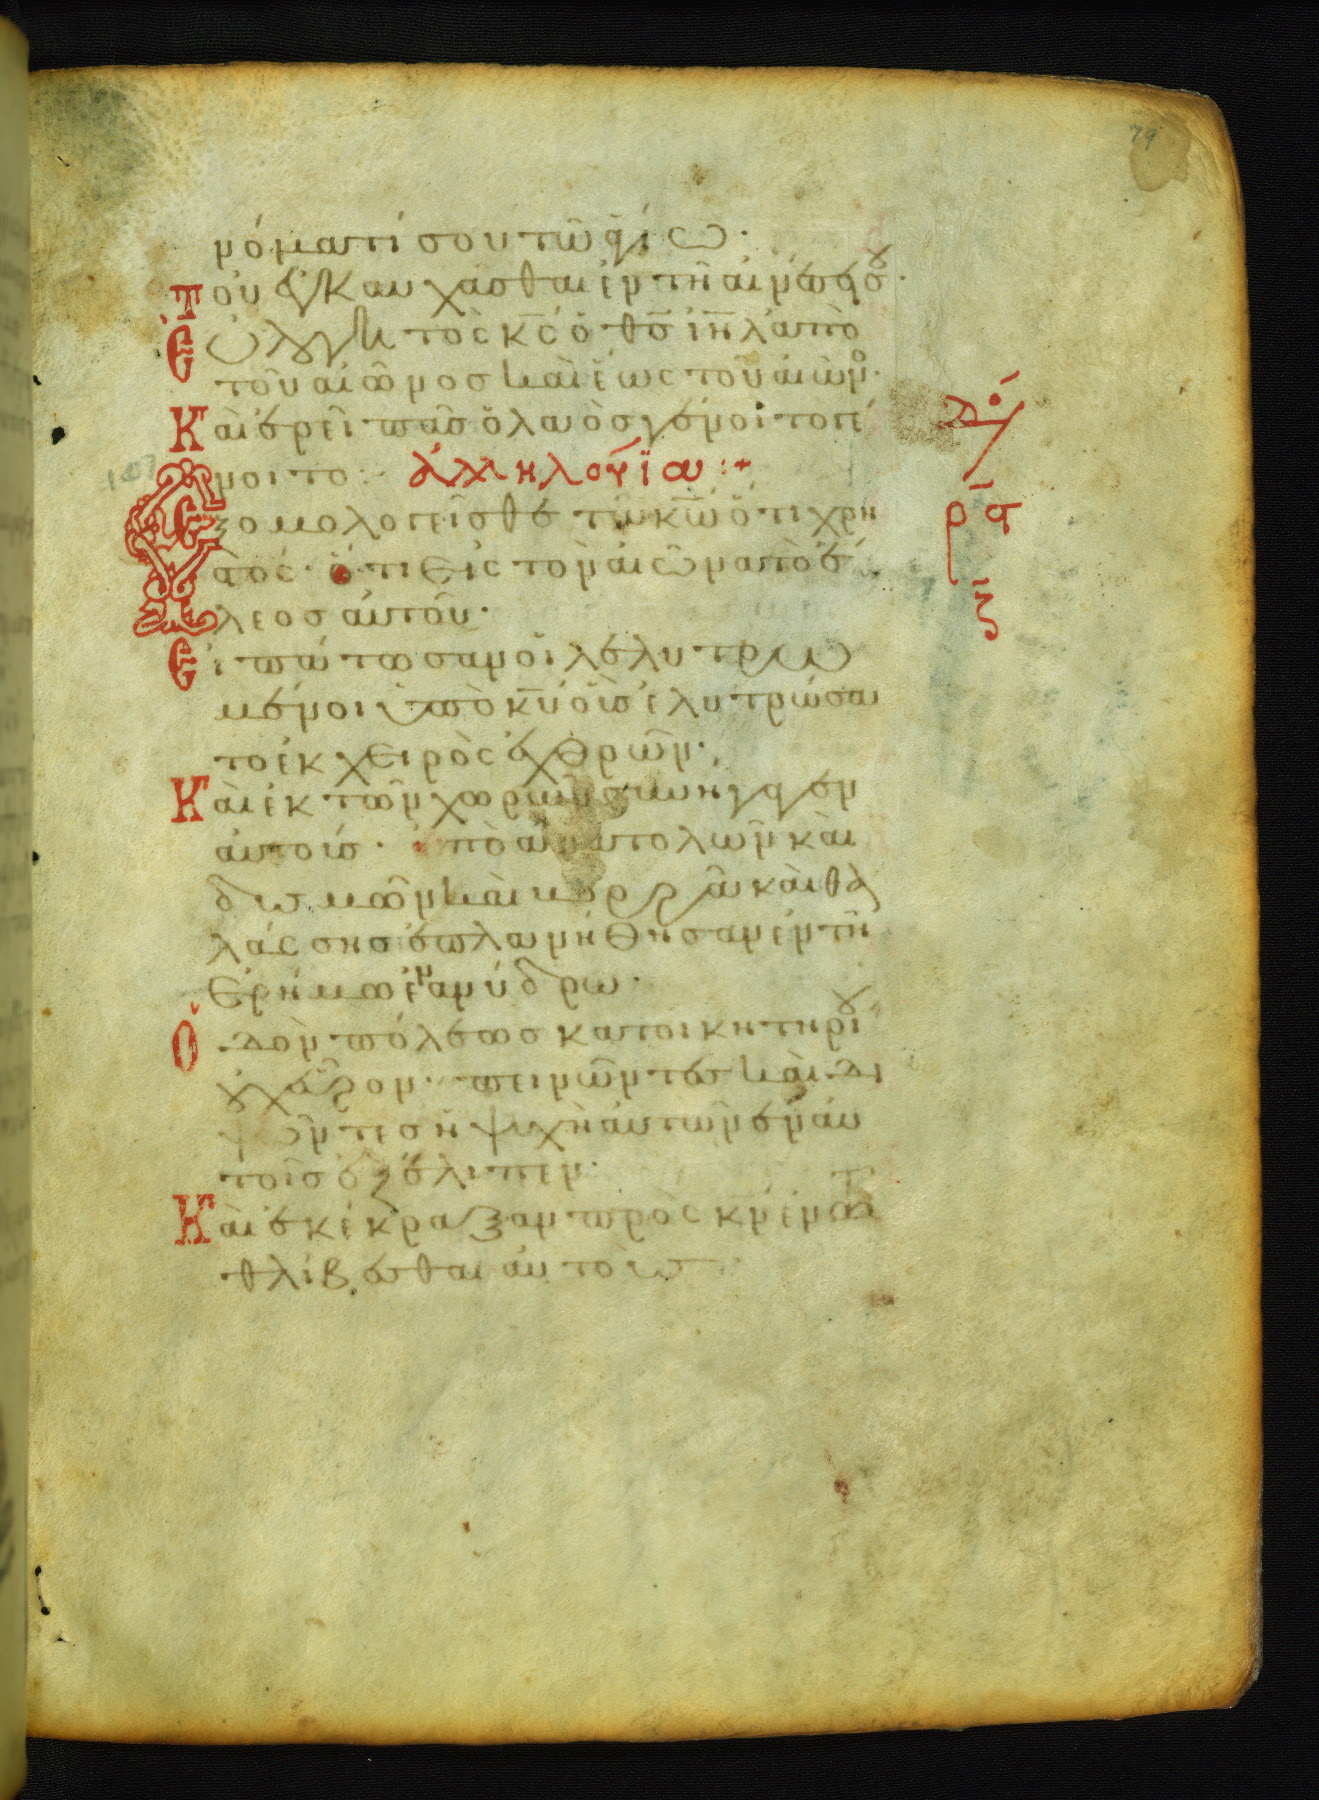 79
νόματί σου τῶ ἁγίω·
Τοῦ ἐγκαυχᾶσθαι ἐν τῆ αἰνέσει σου·
Εὐλογητὸς κς ὁ θς ιηλ ἀπὸ
τοῦ αἰῶνος καὶ ἕως τοῦ αἰῶνο·
Καὶ ἐρεῖ πᾶς ὁ λαὸς γένοιτο γέ
νοιτο:· ἀλληλούϊα:+
107
Ἐξομολογεῖσθε τῶ κω ὅτι χρη
στός· ὅτι εἰς τὸν αἰῶνα τὸ ἔ
λεος αὐτοῦ·
Εἰπάτωσαν οἱ λελυτρω
μένοι ὑπὸ κυ οὓς ἐλυτρώσα
το ἐκ χειρὸς ἐχθρῶν·
Καὶ ἐκ τῶν χωρῶν συνήγαγεν
αὐτούς· ἀπὸ ἀνατολῶν καὶ
δυσμῶν καὶ βορρᾶ καὶ θα
λάσσης ἐπλανήθησαν ἐν τῆ
ἐρήμω ἐν ἀνύδρω·
Ὁδὸν πόλεως κατοικητηρίου
οὐχ εὗρον· πεινῶντες καὶ δι
ψῶντες ἡ ψυχὴ αὐτῶν ἐν αὐ
τοῖς ἐξέλιπεν·
Καὶ ἐκέκραξαν πρὸς κν ἐν τῶ
θλίβεσθαι αὐτοὺς·
δό
ρς